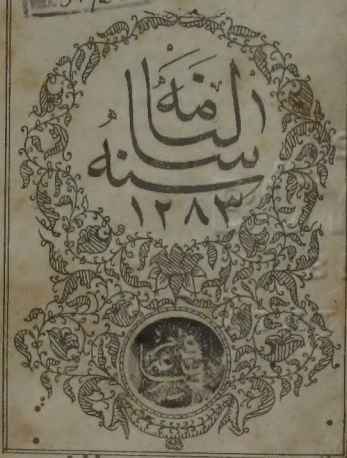 سالنامه
سنه
١٢٨٣